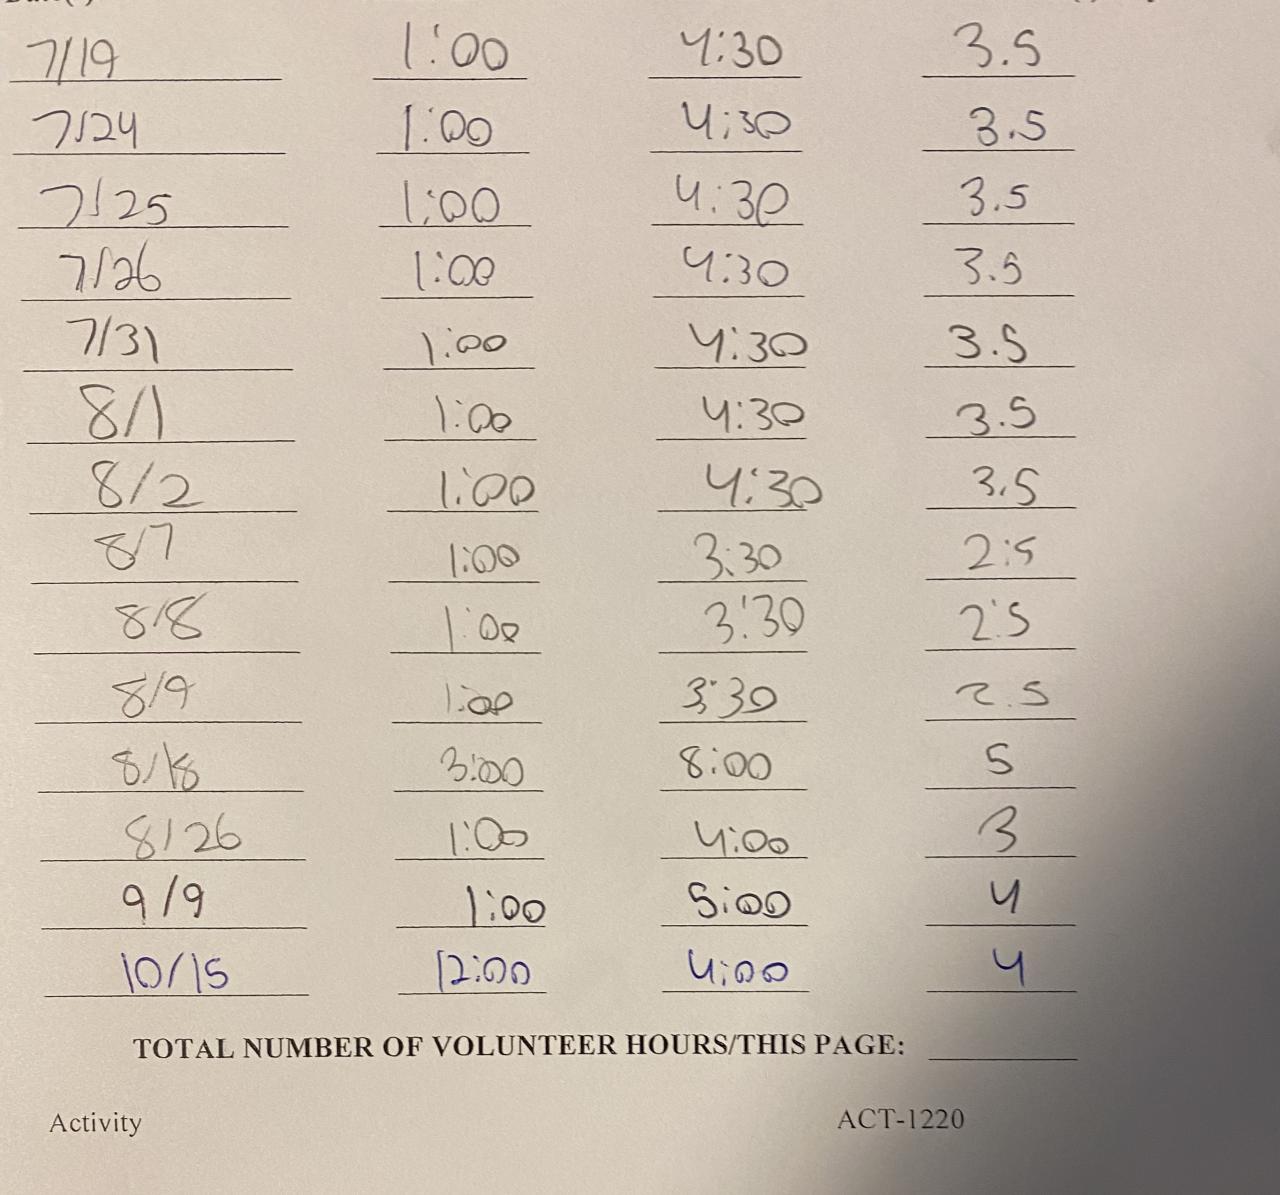 7/19 1:00 4:30 3.5
7/24 1:00 4:30 3.5
7/25 1:00 4:30 3.5
7/26 1:00 4:30 3.5
7/31 1:00 4:30 3.5
8/1 1:00 4:30 3.5
8/2 1:00 4:30 3.5
8/7 1:00 3:30 2:5
8/8 1:00 3:30 2:5
8/9 1:00 3:30 2.5
8/18 3:00 8:00 5
8/26 1:00 4:00 3
9/9 1:00 5:00 4
10/15 12:00 4:00 4
TOTAL NUMBER OF VOLUNTEER HOURS/THIS PAGE:
Activity ACT-1220